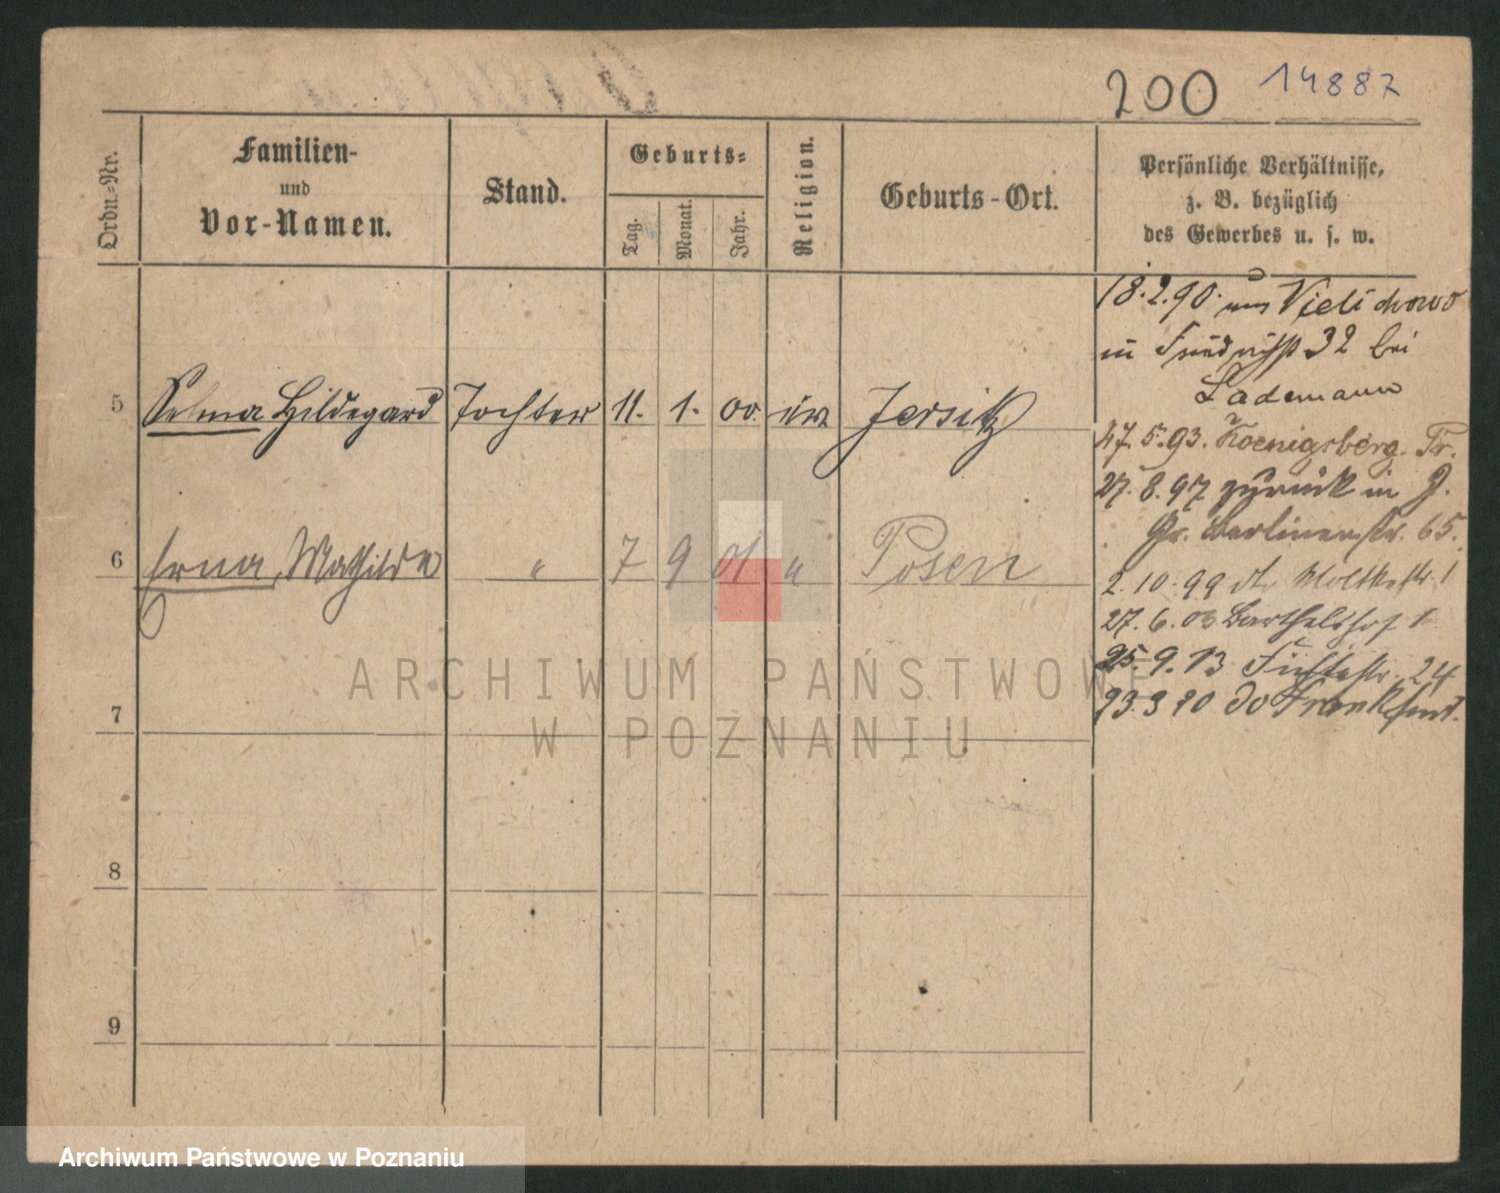 200 14887
Ordn.-Nr.
Familien-
und
Vor-Namen.
Stand.
Geburts-
Tag.
Monat.
Jahr.
Religion.
Geburts-Ort.
Persönliche Verhältnisse,
z. B. bezüglich
des Gewerbes u. s. w.
18.2.90. aus Vielichowo
in Friedrichst 32 bei
Lademann
5 Selma Hildegard Tochter 11. 1. 00. isr Jersitz
27.5.93. Koenigsberg Pr.
27.8.97 zurück in J.
Gr. Berlinerstr. 65.
6 Erna, Mathilde " 7 9 01 " Posen
2.10.99 Moltkestr. 1
27.6.03 Barthelshof 1
25.9.13 Fichtestr. 24
23.3 20 do Frankfurt.
7
8
9
ARCHIWUM PAŃSTWOWE
W POZNANIU
Archiwum Państwowe w Poznaniu